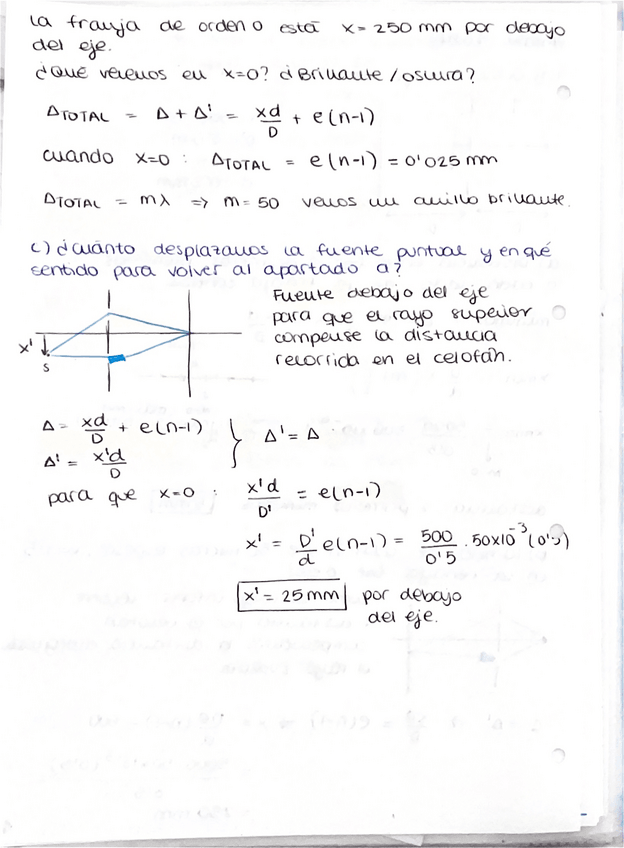 la franja de orden 0 está x = 250 mm por debajo
del eje.
¿Qué veremos en x=0? ¿Brillante / oscura?
Δ_TOTAL = Δ + Δ' = xd/D + e(n-1)
cuando x=0 : Δ_TOTAL = e(n-1) = 0'025 mm
Δ_TOTAL = mλ => m = 50 vemos un anillo brillante.
c) ¿cuánto desplazamos la fuente puntual y en qué
sentido para volver al apartado a?
Fuente debajo del eje
para que el rayo superior
compense la distancia
recorrida en el celofán.
x'
s
Δ = xd/D + e(n-1) } Δ' = Δ
Δ' = x'd/D
para que x=0 : x'd/D' = e(n-1)
x' = D'/d e(n-1) = 500/0'5 · 50x10^-3 (0'5)
x' = 25 mm por debajo
del eje.